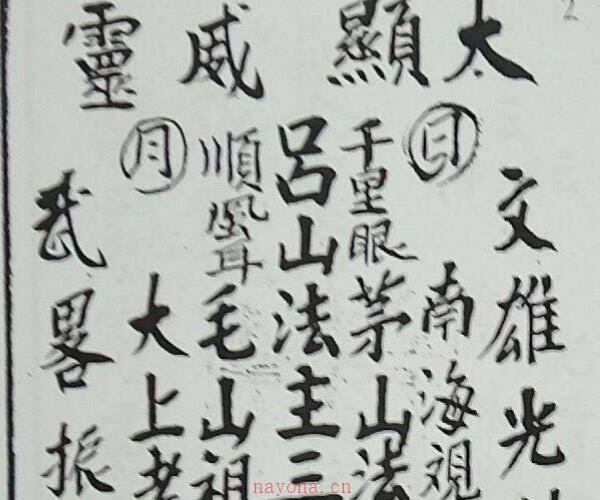 太顯威靈
文雄光
日
南海視
千里眼
茅山法
呂山法主三
順風耳
毛山祖
月
大上老
武畧振
2
nayona.cn